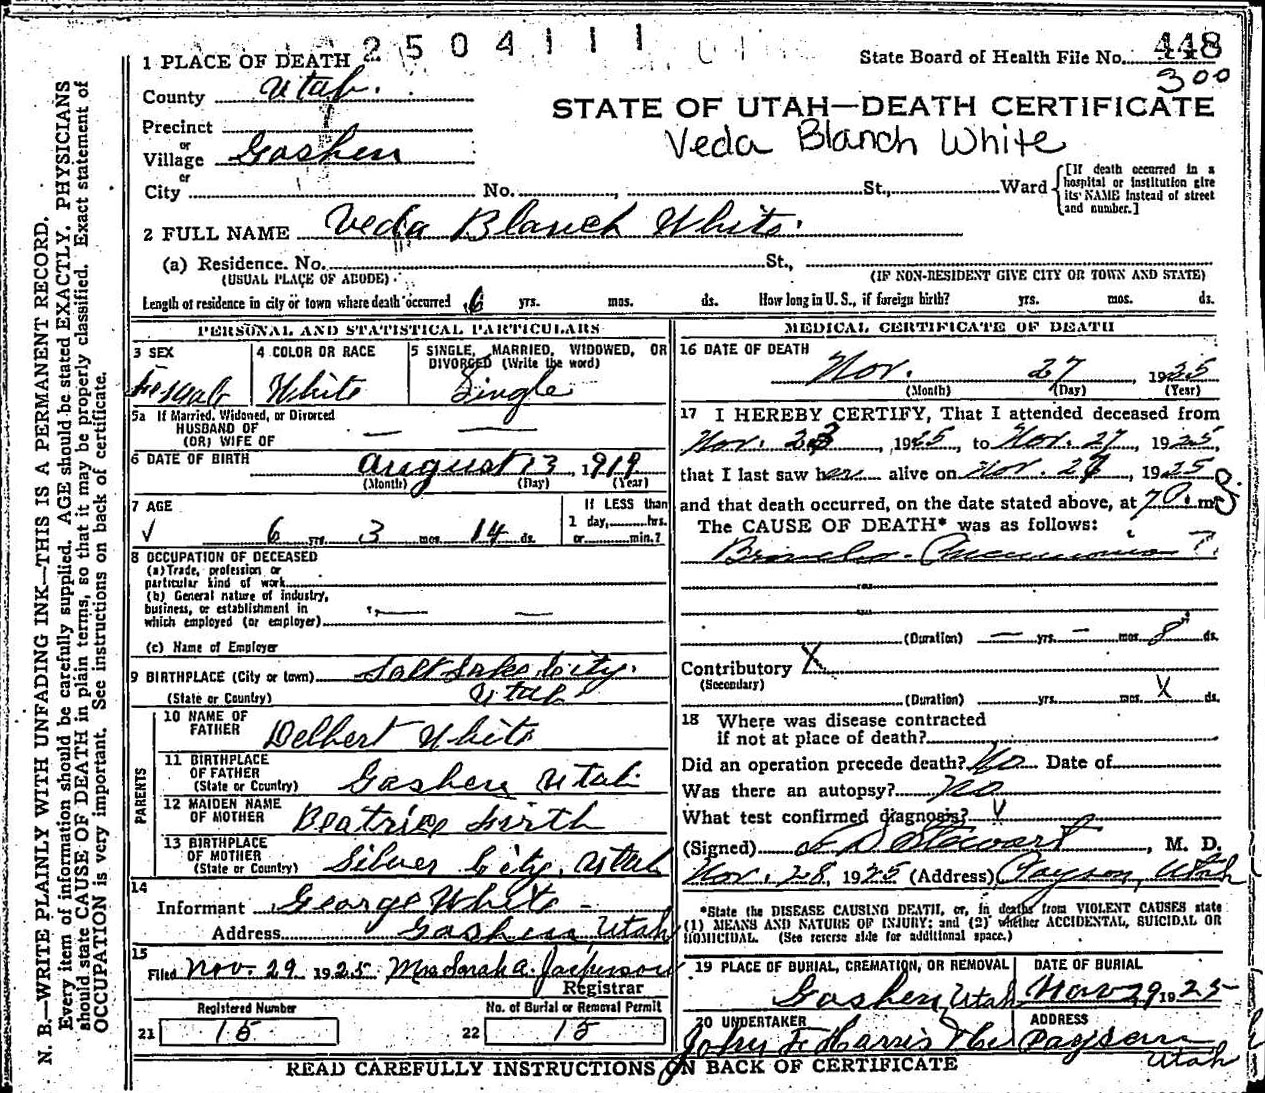 2504111
State Board of Health File No. 448
300
1 PLACE OF DEATH
County Utah.
STATE OF UTAH—DEATH CERTIFICATE
Veda Blanch White
Precinct
or
Village Goshen
or
City No. St., Ward
[If death occurred in a hospital or institution give its NAME instead of street and number.]
2 FULL NAME Veda Blanch White.
(a) Residence. No. St.,
(USUAL PLACE OF ABODE) (IF NON-RESIDENT GIVE CITY OR TOWN AND STATE)
Length of residence in city or town where death occurred 6 yrs. mos. ds. How long in U. S., if foreign birth? yrs. mos. ds.
PERSONAL AND STATISTICAL PARTICULARS
3 SEX 4 COLOR OR RACE 5 SINGLE, MARRIED, WIDOWED, OR
DIVORCED (Write the word)
Female White Single
5a If Married, Widowed, or Divorced
HUSBAND OF
(OR) WIFE OF — —
6 DATE OF BIRTH August 13, 1919
(Month) (Day) (Year)
7 AGE If LESS than
6 yrs. 3 mos. 14 ds. 1 day, hrs.
or min.?
8 OCCUPATION OF DECEASED
(a) Trade, profession or
particular kind of work
(b) General nature of industry,
business, or establishment in
which employed (or employer) — —
(c) Name of Employer
9 BIRTHPLACE (City or town) Salt Lake City.
(State or Country) Utah
PARENTS
10 NAME OF
FATHER Delbert White
11 BIRTHPLACE
OF FATHER
(State or Country) Goshen Utah
12 MAIDEN NAME
OF MOTHER Beatrice Firth
13 BIRTHPLACE
OF MOTHER
(State or Country) Silver City, Utah
14
Informant George White
Address Goshen, Utah
15
Filed Nov. 29 1925 Mrs Sarah A. Jasperson
Registrar
Registered Number No. of Burial or Removal Permit
21 15 22 15
MEDICAL CERTIFICATE OF DEATH
16 DATE OF DEATH
Nov. 27, 1925
(Month) (Day) (Year)
17 I HEREBY CERTIFY, That I attended deceased from
Nov. 23, 1925, to Nov. 27, 1925,
that I last saw her alive on Nov. 27, 1925
and that death occurred, on the date stated above, at m.
The CAUSE OF DEATH* was as follows:
Broncho-Pneumonia
(Duration) — yrs. — mos. 8 ds.
Contributory X
(Secondary)
(Duration) yrs. mos. X ds.
18 Where was disease contracted
if not at place of death?
Did an operation precede death? No Date of
Was there an autopsy? No
What test confirmed diagnosis?
(Signed) Stewart, M. D.
Nov. 28, 1925 (Address) Payson, Utah
*State the DISEASE CAUSING DEATH, or, in deaths from VIOLENT CAUSES state
(1) MEANS AND NATURE OF INJURY; and (2) whether ACCIDENTAL, SUICIDAL OR
HOMICIDAL. (See reverse side for additional space.)
19 PLACE OF BURIAL, CREMATION, OR REMOVAL DATE OF BURIAL
Goshen, Utah Nov 29 1925
20 UNDERTAKER ADDRESS
John F. Harris Payson
Utah
READ CAREFULLY INSTRUCTIONS ON BACK OF CERTIFICATE
N. B.—WRITE PLAINLY WITH UNFADING INK—THIS IS A PERMANENT RECORD.
Every item of information should be carefully supplied. AGE should be stated EXACTLY. PHYSICIANS
should state CAUSE OF DEATH in plain terms, so that it may be properly classified. Exact statement of
OCCUPATION is very important. See instructions on back of certificate.